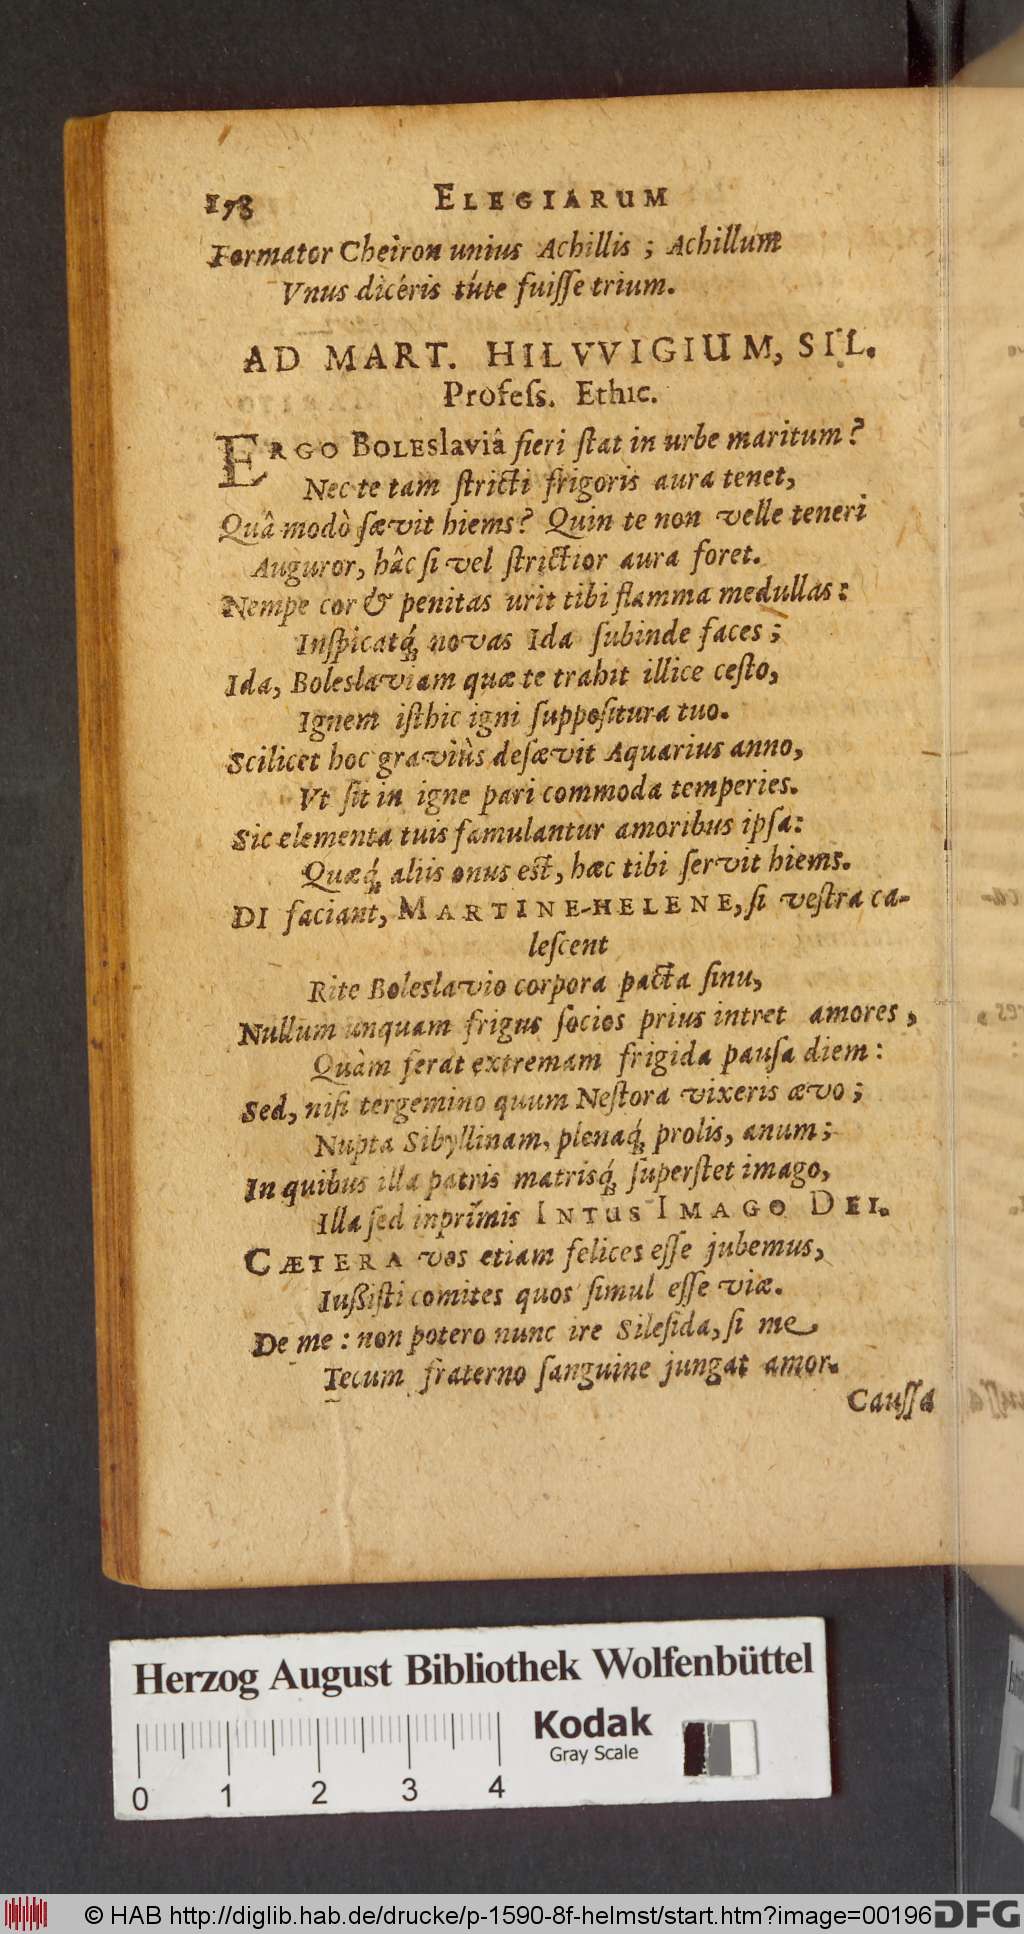 178 ELEGIARUM
Formator Cheiron unius Achillis ; Achillum
Vnus dicéris túte fuiſſe trium.
AD MART. HILVVIGIUM, SIL.
Profeſs. Ethic.
ERGO BOLESlaviâ fieri ſtat in urbe maritum ?
Nec te tam ſtricti frigoris aura tenet,
Quâ modò ſævit hiems ? Quin te non velle teneri
Auguror, hâc ſi vel ſtrictior aura foret.
Nempe cor & penitas urit tibi flamma medullas :
Inſpicatq́; novas Ida ſubinde faces ;
Ida, Boleslaviam quæ te trahit illice ceſto,
Ignem iſthic igni ſuppoſitura tuo.
Scilicet hoc graviùs deſævit Aquarius anno,
Vt ſit in igne pari commoda temperies.
Sic elementa tuis famulantur amoribus ipſa:
Quæq́; aliis onus eſt, hæc tibi ſervit hiems.
DI faciant, MARTINE-HELENE, ſi veſtra ca-
leſcent
Rite Boleslavio corpora pacta ſinu,
Nullum unquam frigus ſocios prius intret amores ,
Quàm ferat extremam frigida pauſa diem :
Sed, niſi tergemino quum Neſtora vixeris ævo ;
Nupta Sibyllinam, plenaq́; prolis, anum ;
In quibus illa patris matrisq́; ſuperſtet imago,
Illa ſed inprîmis INTUS IMAGO DEI.
CÆTERA vos etiam felices eſſe jubemus,
Iußiſti comites quos ſimul eſſe viæ.
De me : non potero nunc ire Sileſida, ſi me
Tecum fraterno ſanguine jungat amor.
Cauſſa
Herzog August Bibliothek Wolfenbüttel
Kodak
Gray Scale
0 1 2 3 4
© HAB http://diglib.hab.de/drucke/p-1590-8f-helmst/start.htm?image=00196 DFG